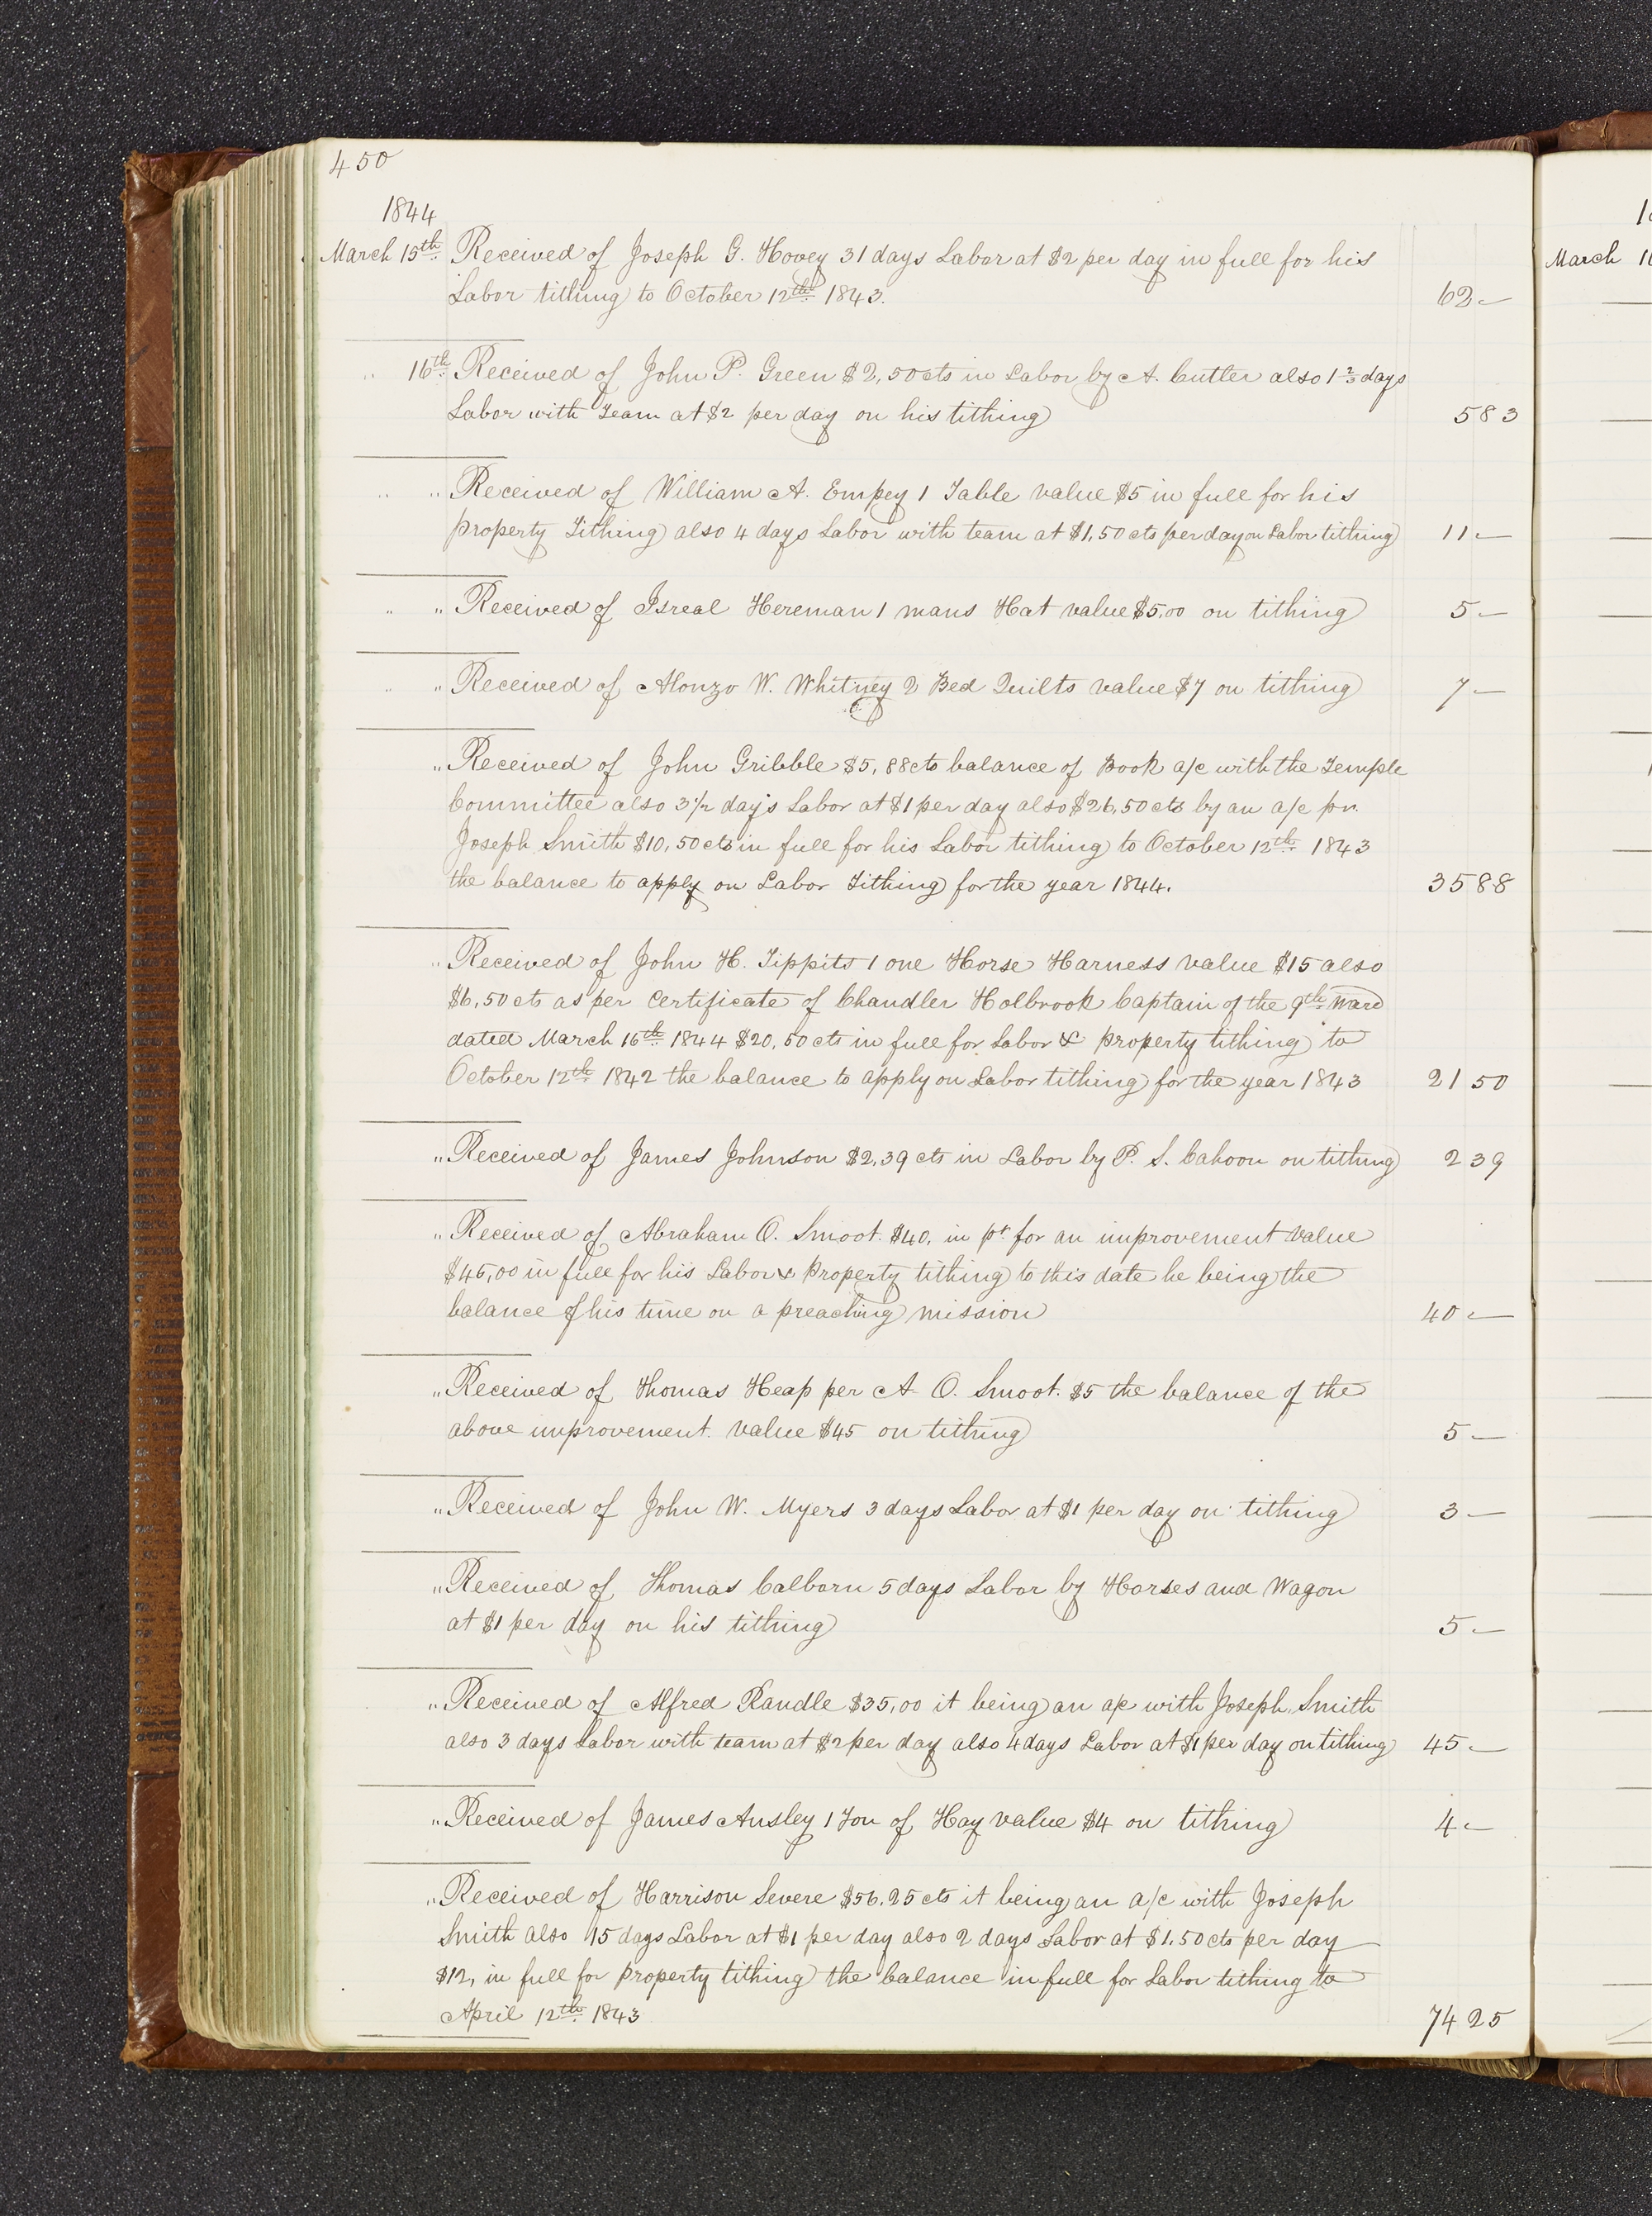 450
1844
March 15th Received of Joseph G. Hovey 31 days Labor at $2 per day in full for his
Labor tithing to October 12th 1843. 62 —
" 16th Received of John P. Green $2,50cts in Labor by A. Cutler also 1 2/3 days
Labor with Team at $2 per day on his tithing 5 83
" " Received of William A. Empey 1 Table value $5 in full for his
property Tithing also 4 days Labor with team at $1,50 cts per day on Labor tithing 11 —
" " Received of Isreal Hereman 1 mans Hat value $5,00 on tithing 5 —
" " Received of Alonzo W. Whitney 2 Bed Quilts value $7 on tithing 7 —
" Received of John Gribble $5,88cts balance of Book a/c with the Temple
Committee also 3 1/2 days Labor at $1 per day also $26,50 cts by an a/c pr.
Joseph Smith $10,50 cts in full for his Labor tithing to October 12th 1843
the balance to apply on Labor Tithing for the year 1844. 35 88
" Received of John H. Tippits 1 one Horse Harness value $15 also
$6,50 cts as per Certificate of Chandler Holbrook Captain of the 9th Ward
dated March 16th 1844 $20,50 cts in full for Labor & property tithing to
October 12th 1842 the balance to apply on Labor tithing for the year 1843 21 50
" Received of James Johnson $2,39 cts in Labor by P. S. Cahoon on tithing 2 39
" Received of Abraham O. Smoot. $40, in pt for an improvement value
$45,00 in full for his Labor & Property tithing to this date he being the
balance of his time on a preaching mission 40 —
" Received of Thomas Heap per A. O. Smoot. $5 the balance of the
above improvement. value $45 on tithing 5 —
" Received of John W. Myers 3 days Labor at $1 per day on tithing 3 —
" Received of Thomas Calborn 5 days Labor by Horses and Wagon
at $1 per day on his tithing 5 —
" Received of Alfred Randle $35,00 it being an a/c with Joseph Smith
also 3 days Labor with team at $2 per day also 4 days Labor at $1 per day on tithing 45 —
" Received of James Ansley 1 Ton of Hay value $4 on tithing 4 —
" Received of Harrison Severe $56.25 cts it being an a/c with Joseph
Smith also 15 days Labor at $1 per day also 2 days Labor at $1.50 cts per day
$12, in full for property tithing the balance in full for Labor tithing to
April 12th 1843 74 25
March